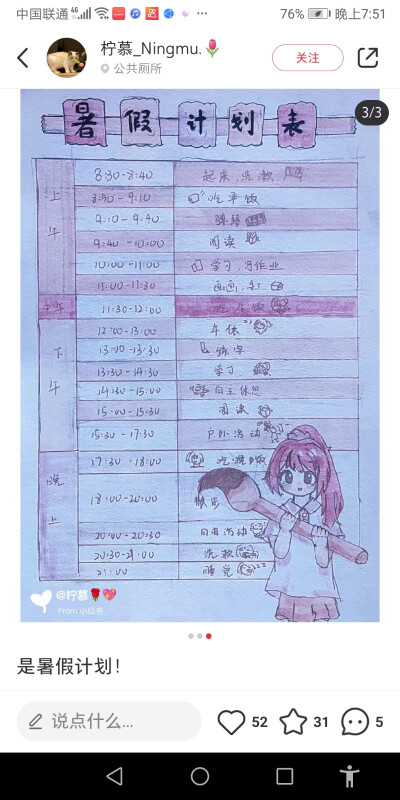 中国联通 76% 晚上7:51
柠慕_Ningmu.
公共厕所
关注
3/3
暑假计划表
上午
8:30-8:40 起床、洗漱
8:40-9:10 吃早饭
9:10-9:40 弹琴
9:40-10:00 阅读
10:00-11:00 学习,写作业
11:00-11:30 画画,
中午
11:30-12:00 吃午饭
下午
12:00-13:00 午休
13:00-13:30 练字
13:30-14:30 学习
14:30-15:00 自主休息
15:00-15:30 阅读
15:30-17:30 户外活动
晚上
17:30-18:00 吃晚饭
18:00-20:00 散步
20:00-20:30 自由活动
20:30-21:00 洗漱
21:00 睡觉
@柠慕
From 小红书
是暑假计划!
说点什么... 52 31 5